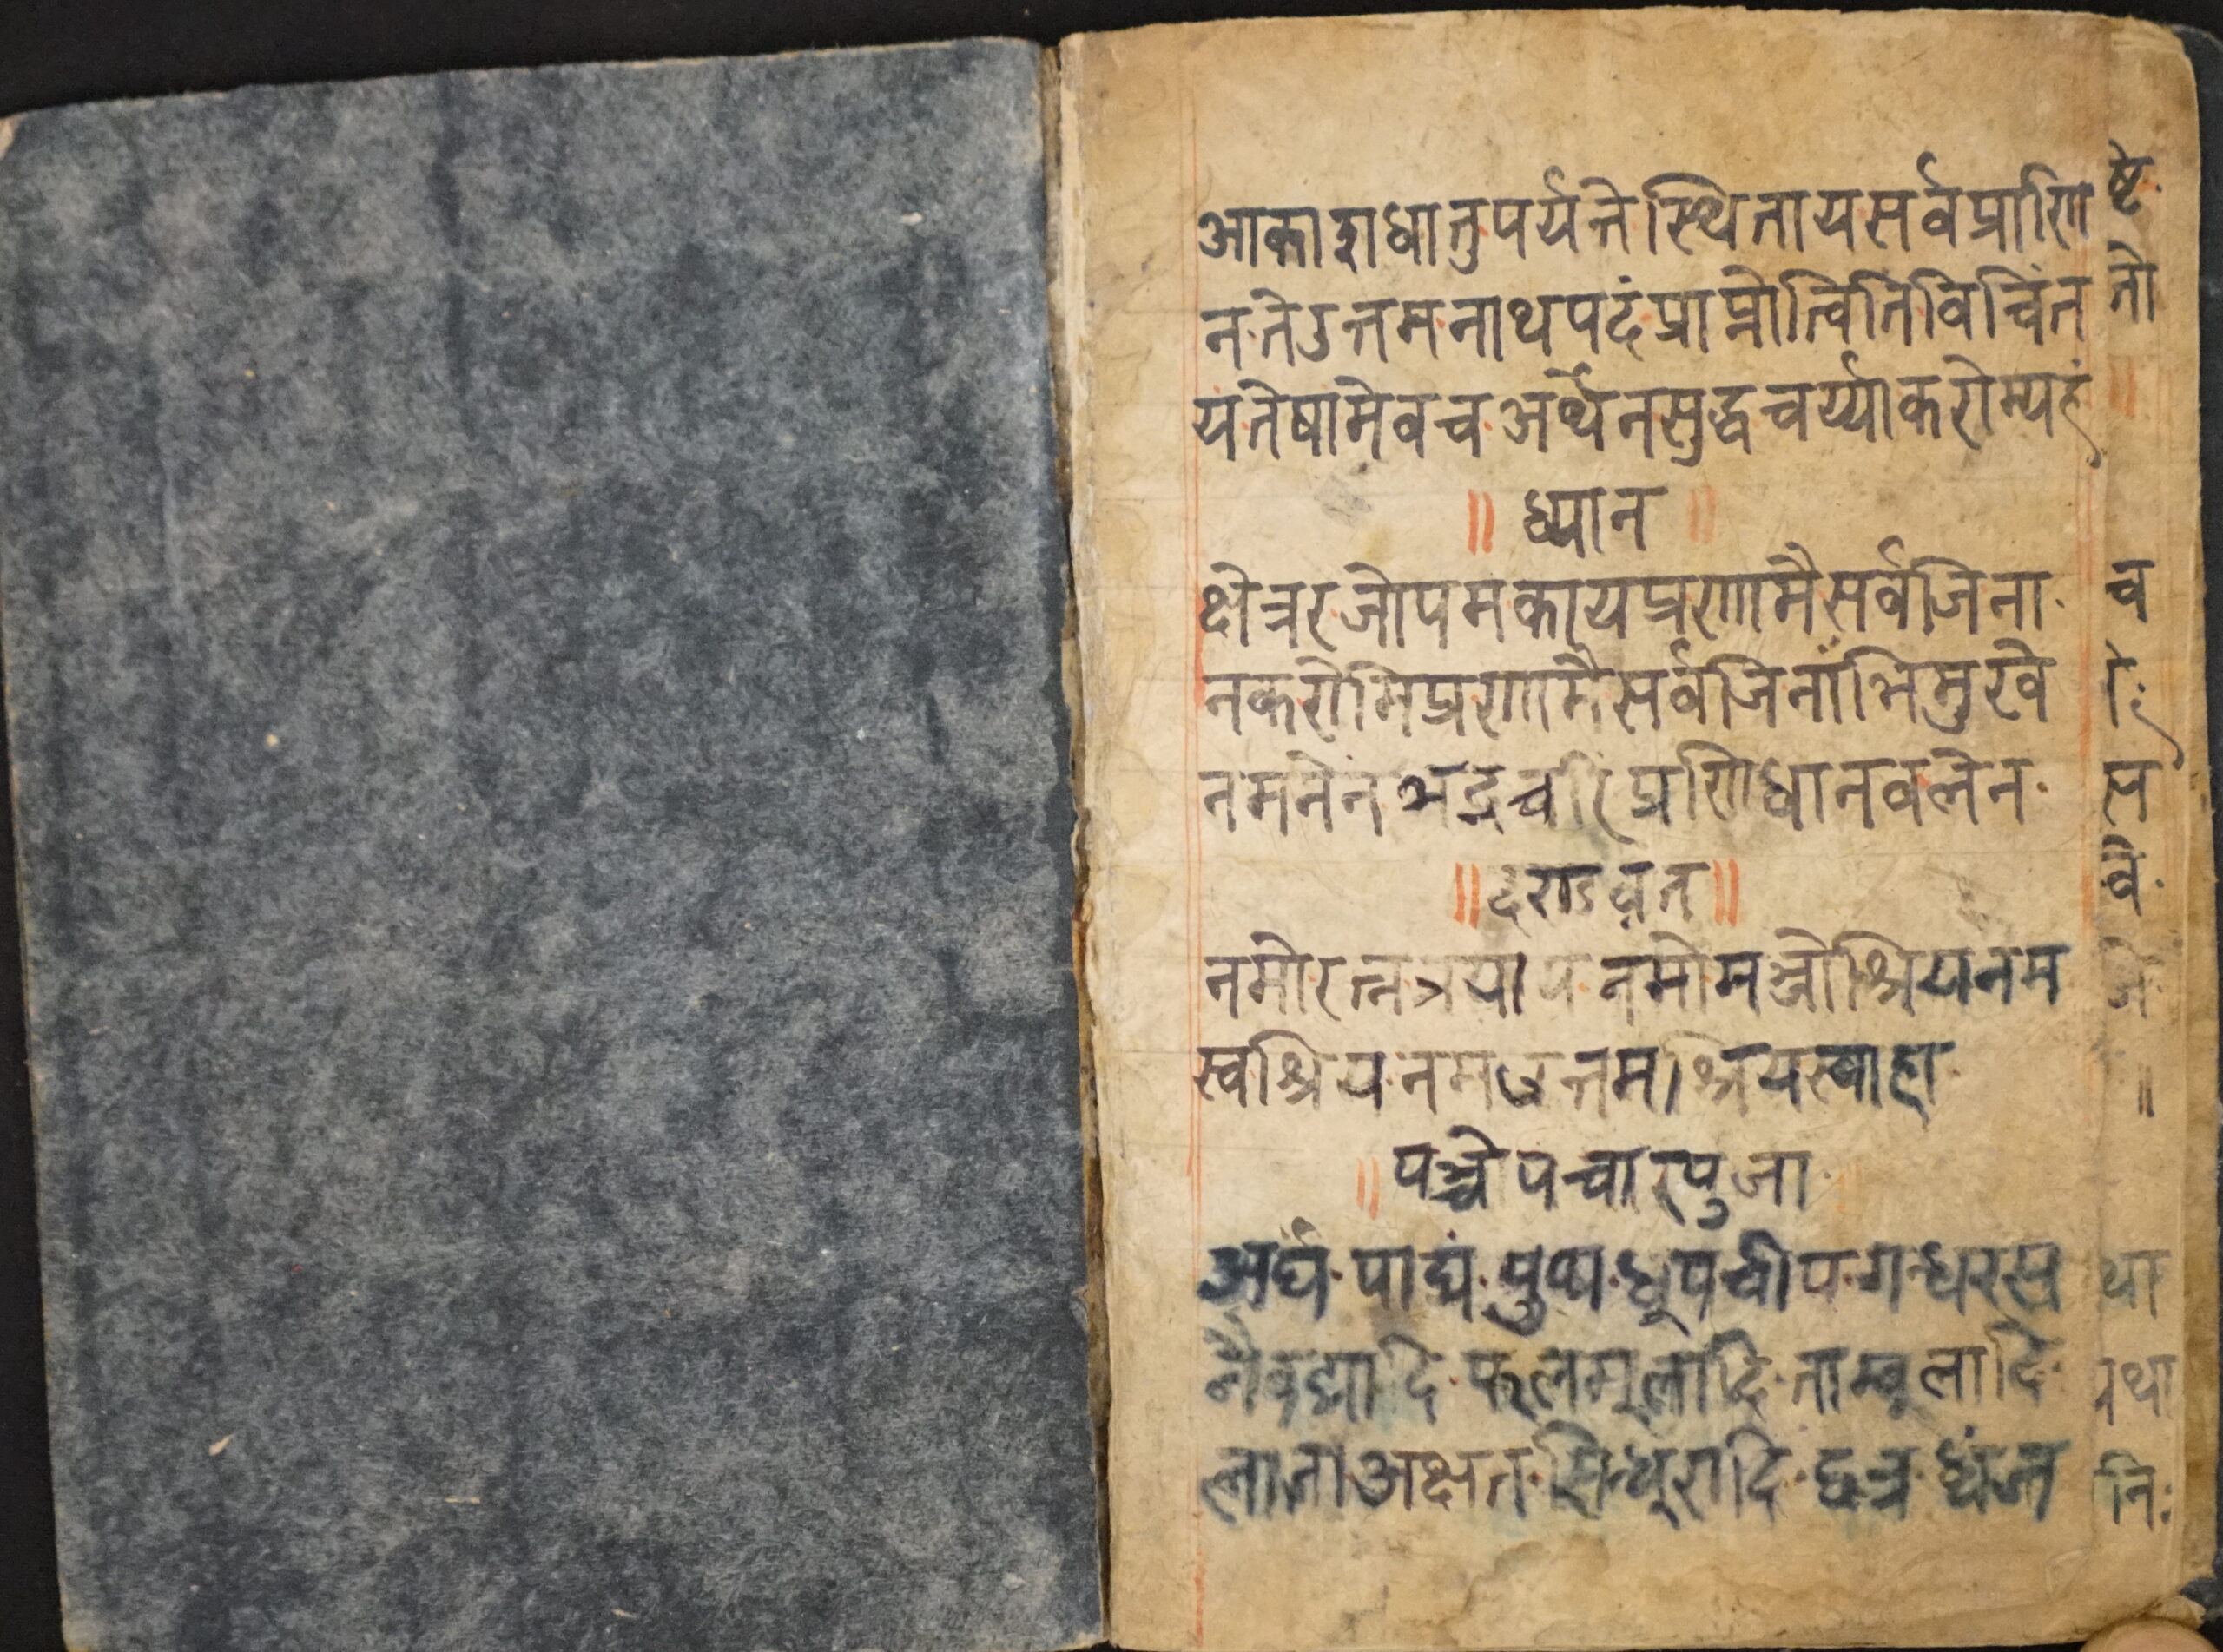 आकाशधातुपर्यन्तेस्थितायसर्वप्राणि
न·तेउत्तमनाथपदंप्राप्नोत्वितिविचिंत
यतेषामेवच·अर्थेनसुद्धचर्य्याकरोम्यहं
॥ ध्यान ॥
क्षेत्ररजोपमकायप्रणामैसर्वजिना·
नकरोमिप्रणामैसर्वजिनाभिमुखे
नमनेनभद्रचरिप्रणिधानवलेन·
॥ दण्डवत ॥
नमोरत्नत्रयाय·नमोमञ्जोश्रियनम
स्वश्रियनमउत्तमश्रियस्वाहा
॥ पञ्चोपचारपुजा
अर्घ·पाद्यं·पुष्प·धूप·दीप·गन्धरस
नैवद्यादि·फलमूलादि·ताम्बुलादि
लाजाअक्षत·सिन्धूरादि·